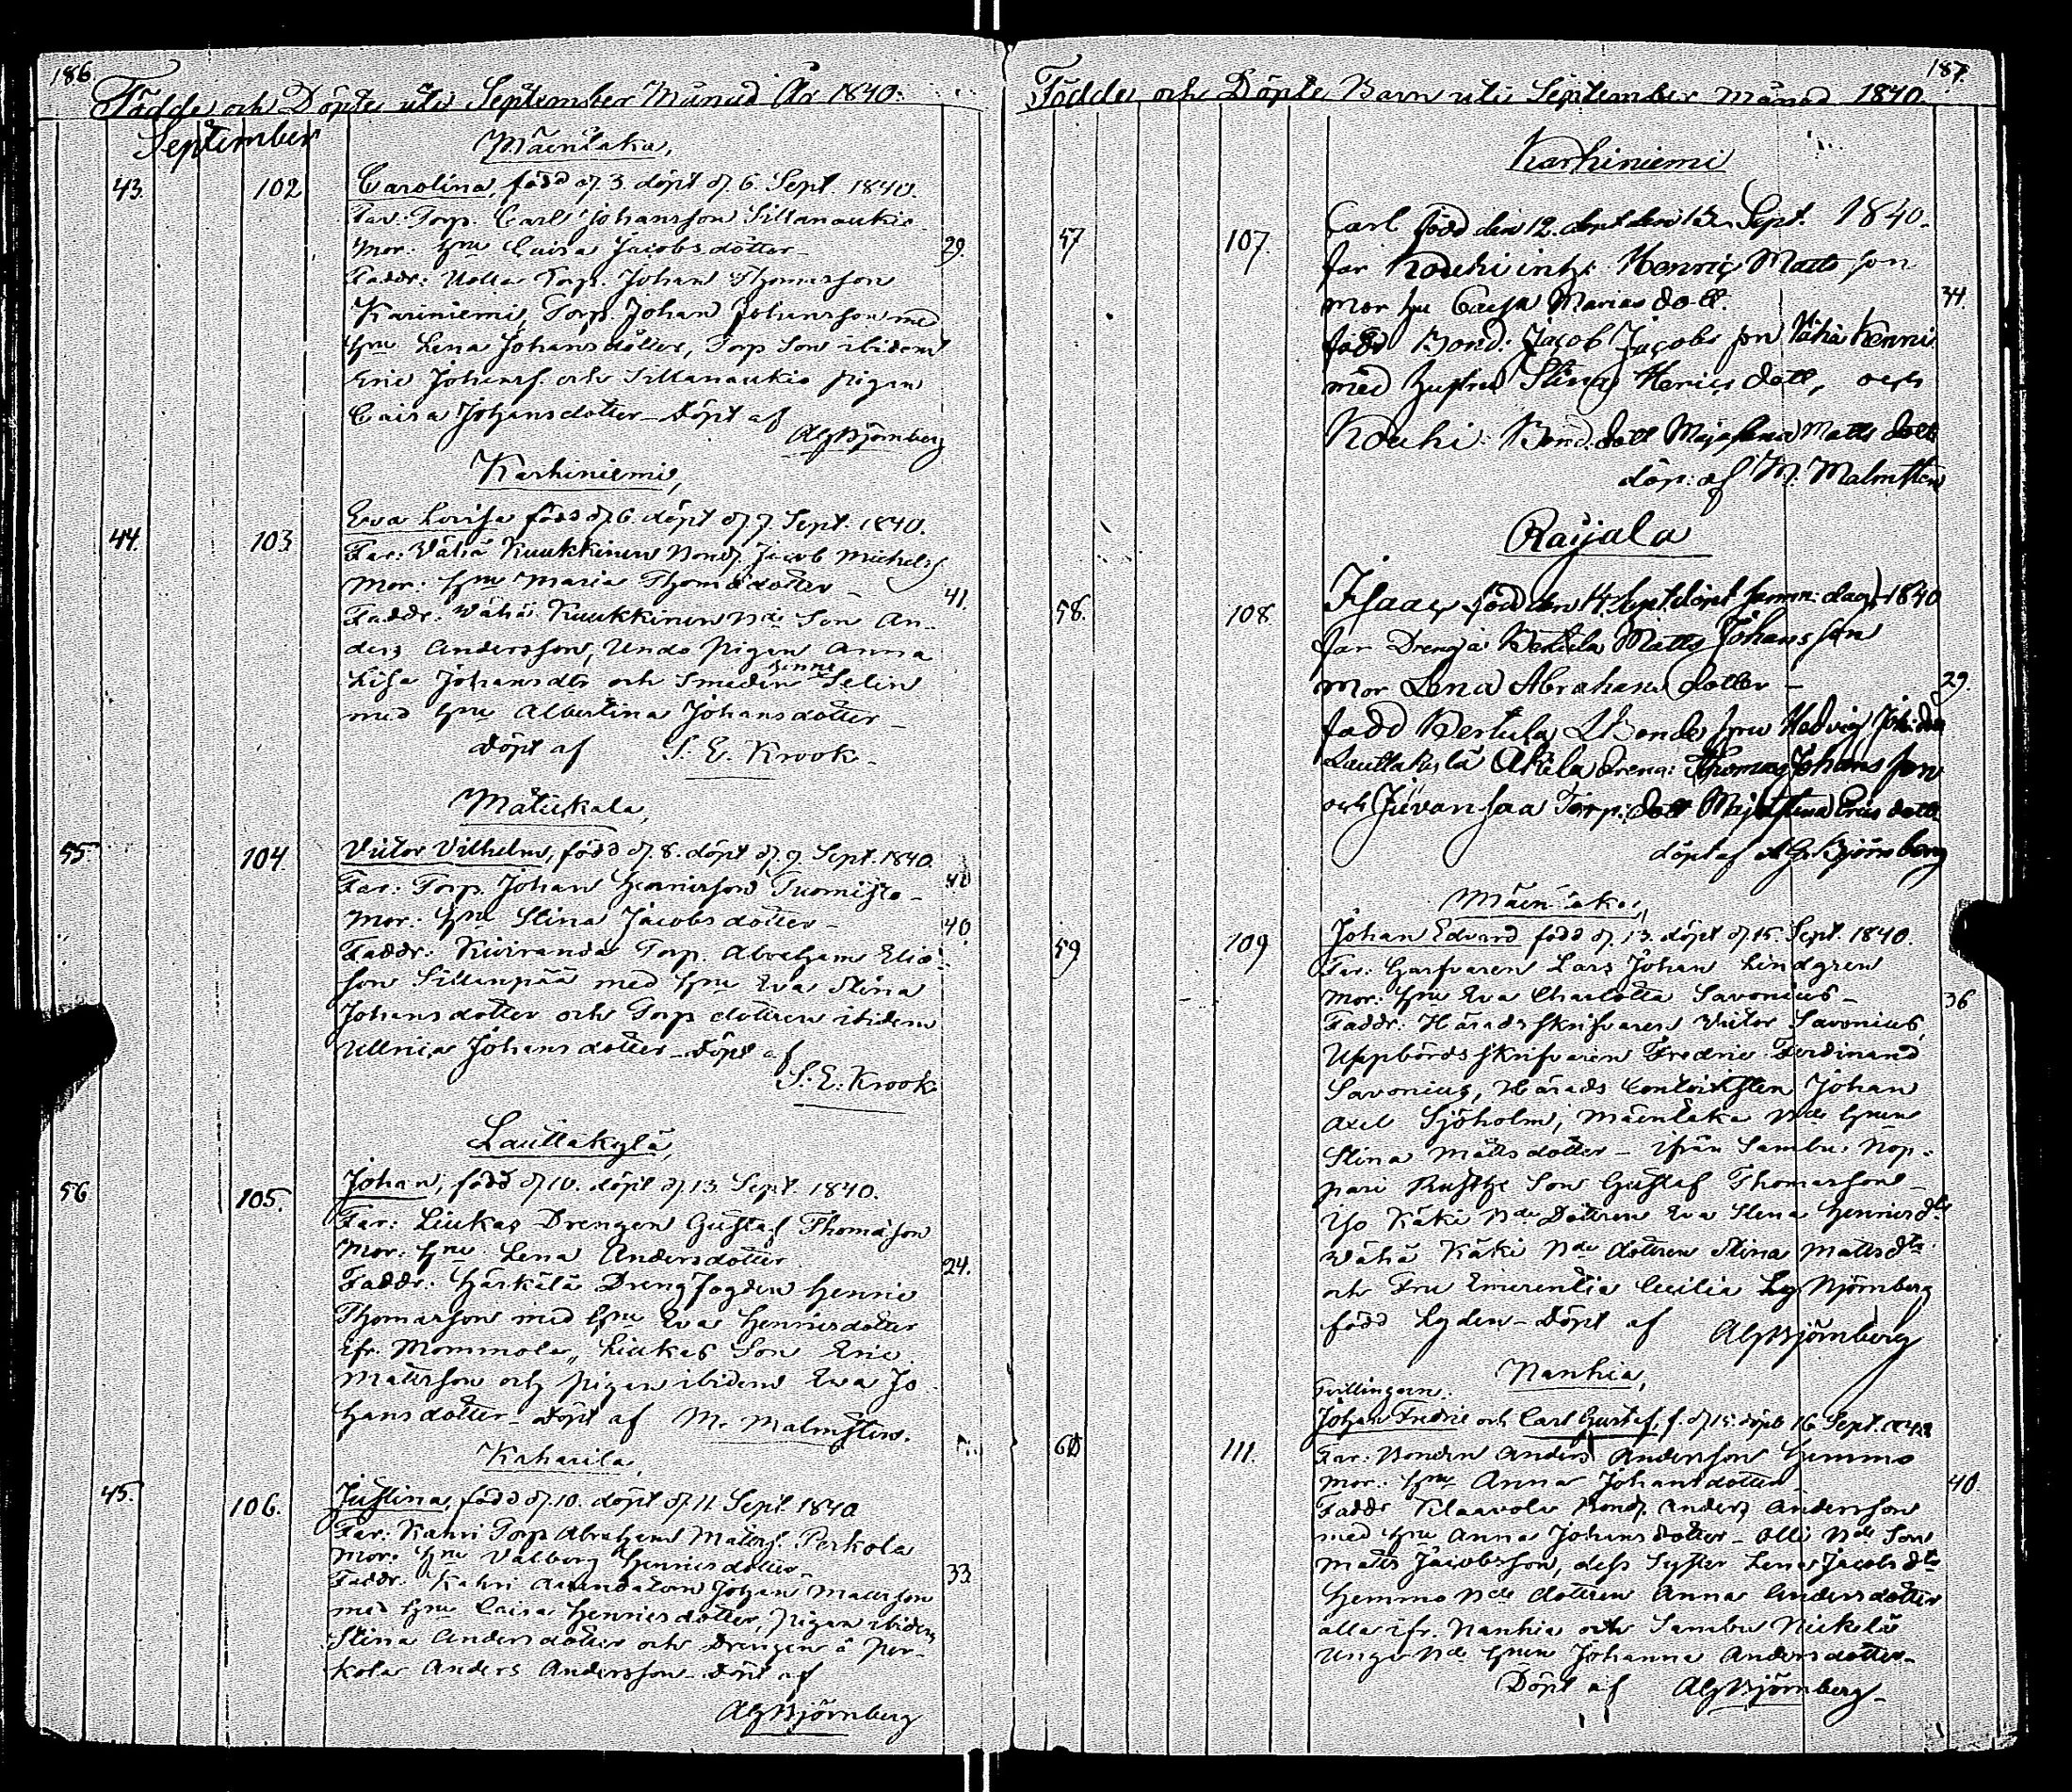 186.
Födde och Döpte uti September Månad År 1840.
September
Mäenlaka,
43. 102 Carolina, född d. 3. döpt d. 6. Sept. 1840.
Far: Torp. Carl Johansson Sillanaukio
Mor: Hru Caisa Jacobsdotter 29.
Faddr: Torp. Johan Thomasson
Kariniemi, Torp. Johan Johansson med
Hru Lena Johansdotter, Torp Son ibidem
Eric Johanss. och Sillanaukio pigan
Caisa Johansdotter – Döpt af
AGBjörnberg
Karhiniemi,
44. 103 Eva Lovisa född d. 6. döpt d. 7. Sept. 1840.
Far: Vähä Kuukkinen Bond. Jacob Michelss.
Mor: Hru Maria Thomadotter – 41.
Faddr: Wähä Kuukkinen Bde Son An-
ders Andersson, Undo pigan Anna
Lisa Johansdtr och Smeden Selin
med Hru Albertina Johansdotter –
Döpt af S. E. Krook.
Matickala,
55. 104. Victor Vilhelm, född d. 8. döpt d. 9. Sept. 1840.
Far: Torp. Johan Henricsson Tuomisto – 40
Mor: Hru Stina Jacobsdotter – 40
Faddr: Kiviranda Torp. Abraham Elia-
son Sillanpää med Hru Eva Stina
Johansdotter och Torp dottren ibidem
Ullrica Johansdotter – Döpt af
S. E. Krook
Lauttakylä,
56 105. Johan, född d. 10. döpt d. 13 Sept. 1840.
Far: Liukas Drengen Gustaf Thomasson
Mor: Hru Lena Andersdotter 24.
Faddr: Härkälä Drengfogden Henric
Thomasson med Hru Eva Henricsdotter
ifr. Mommola, Liukas Son Eric
Mattsson och pigan ibidem Eva Jo-
hansdotter – Döpt af M. Malmsten.
Kaharila,
45. 106. Justina, född d. 10. döpt d. 11. Sept. 1840
Far: Kahri Torp Abraham Matss. Perkola
Mor: Hru Valborg Henricsdotter – 33
Faddr. Kahri Arrendatorn Johan Matsson
med Hru Caisa Henricsdotter, pigan ibidem
Stina Andersdotter och Drengen å Per-
kola Anders Andersson – Döpt af
AGBjörnberg
187.
Födde och Döpte Barn uti September Månad 1840.
Karhiniemi
57 107. Carl född den 12. döpt den 13. Sept. 1840.
far Kouhi inh: Henric Matts son
mor hu Caisa Marias dott. 34.
fadd Bond: Jacob Jacobs son Vähä Kenni
med hustru Stina Henrics dott, och
Kouhi Bond. dott Majastina Matts dott
döp: af M. Malmsten
Raijala
58. 108 Isaac född den 14 Sept. döpt samm: dag 1840
far Dreng å Bertula Matts Johansson
mor Lena Abrahams dotter – 29.
fadd Bertula Bonde hru Hedvig Joh: dott
Lauttakylä Akola Dreng: Thomas Johansson
och Juvansaa Torp: dott Majastina Erics dott
döpt af AG Björnberg
Mäenlaka,
59 109 Johan Edvard född d. 13. döpt d. 15. Sept. 1840.
Far: Garfvaren Lars Johan Lindgren
Mor: Hru Eva Charlotta Savonius – 36
Faddr: Häradsskrifvaren Victor Savonius,
Uppbördsskrifvaren Fredric Ferdinand
Savonius, Härads Contoristen Johan
Axel Sjöholm, Mäenlaka Bde Hrun
Stina Mattsdotter – ifrån Sambu: Nop-
pari Rusth. Son Gustaf Thomasson –
Iso Käki Bde Dottren Eva Stena Henricsdtr
Wähä Käki Bde dottren Stina Mattsdtr
och Fru Emerentia Cecilia Björnberg
född Lyden – Döpt af AGBjörnberg
Nanhia,
Tvillingarn.
60 111. Johan Fredric och Carl Gustaf, f. d. 15. döpt 16 Sept. 1840
Far: Bonden Anders Andersson Hemmo
Mor: Hru Anna Johansdotter – 40.
Faddr Klaavola Bond. Anders Andersson
med Hru Anna Johansdotter – Olli Bde Son
Matts Jacobsson, dess Syster Lena Jacobsdtr
Hemmo Bde dottren Anna Andersdotter
alla ifr. Nanhia och Sambu Nickilä
Unga Bde Hrun Johanna Andersdotter –
Döpt af AGBjörnberg –